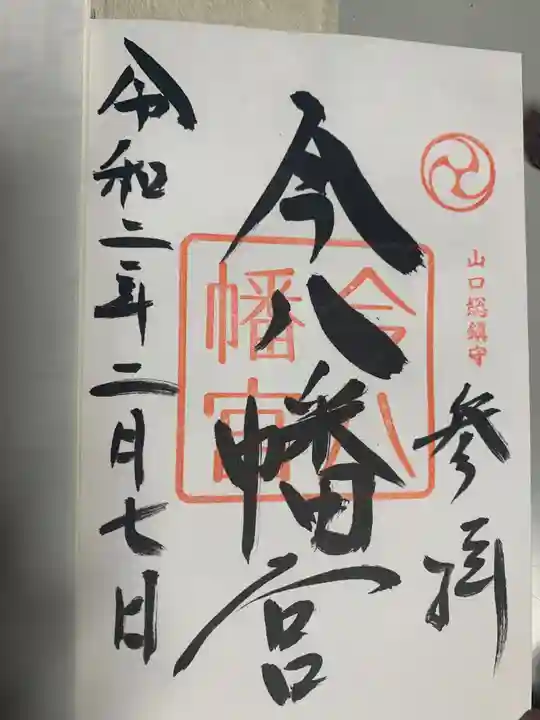 山口総鎮守
参拝
今八幡宮
今八
幡宮
令和二年二月七日